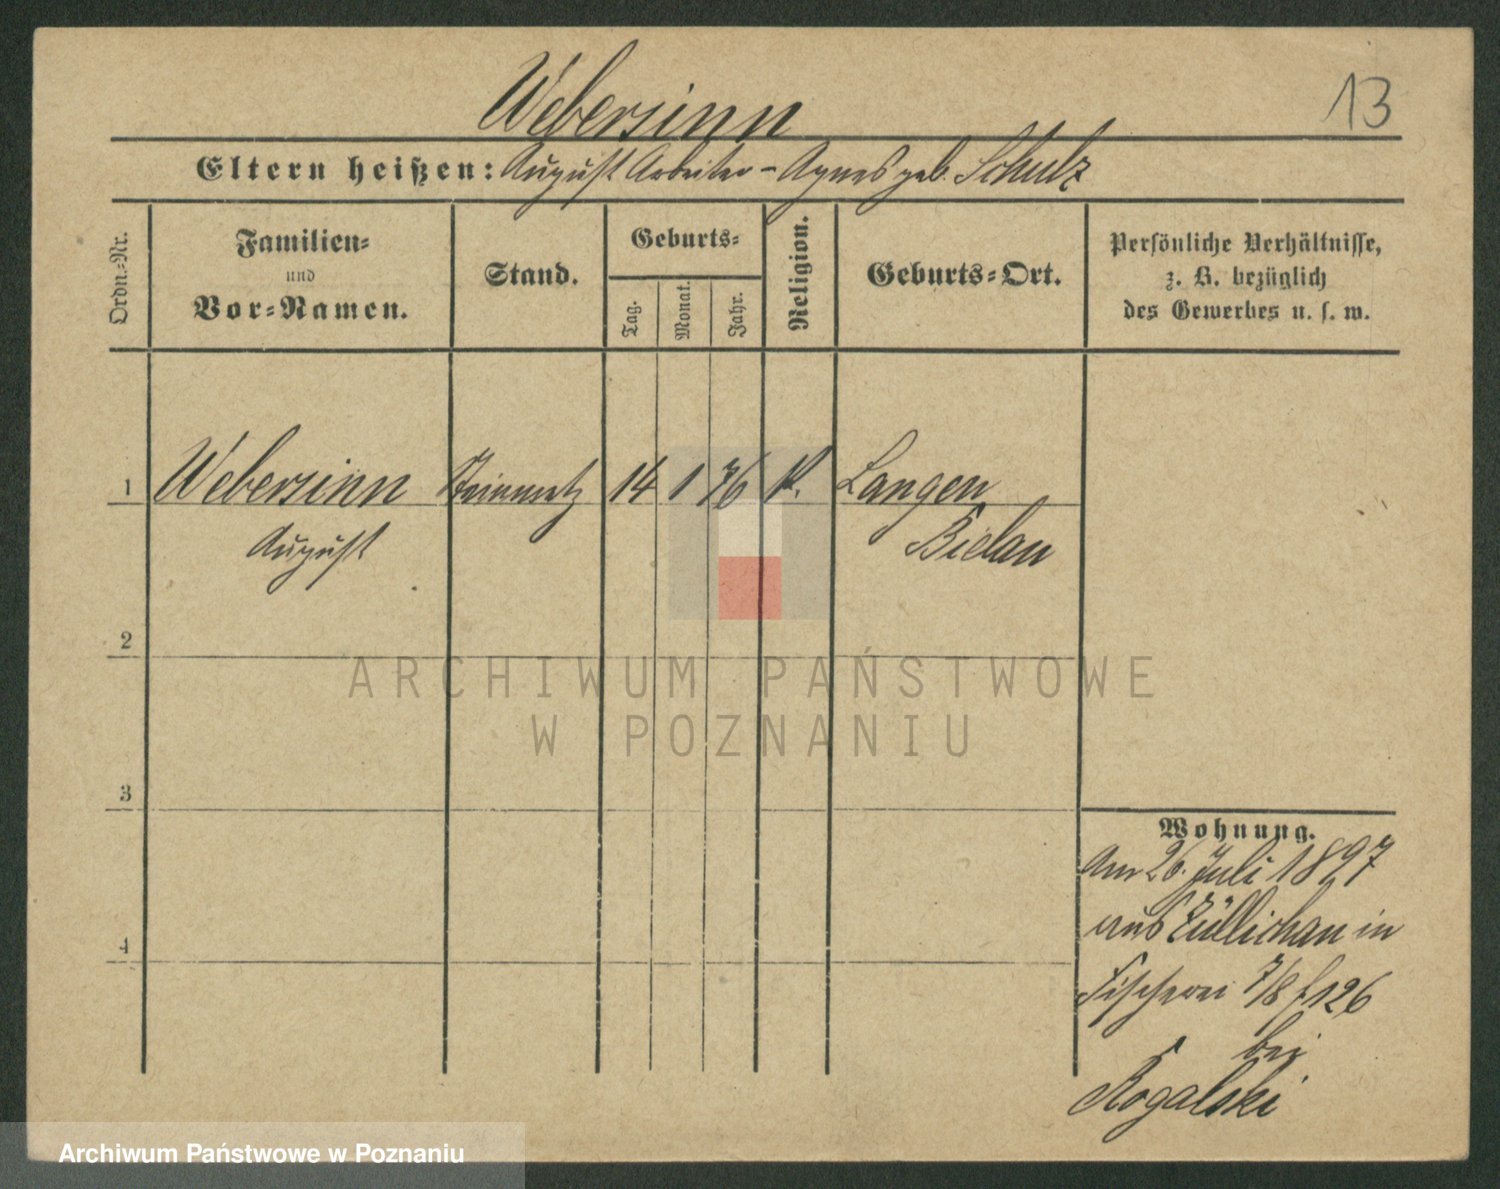 Webersinn
13
Eltern heißen: August Arbeiter - Agnes geb. Schulz
Ordn.-Nr.
Familien-
und
Vor-Namen.
Stand.
Geburts-
Tag.
Monat.
Jahr.
Religion.
Geburts-Ort.
Persönliche Verhältnisse,
z. B. bezüglich
des Gewerbes u. s. w.
1 Webersinn Steinmetz 14 1 76 k. Langen
August Bielau
2
3
4
Wohnung.
Am 26. Juli 1897
aus Züllichau in
Fischerei 7/8 f 126
bei
Rogalski
ARCHIWUM PAŃSTWOWE
W POZNANIU
Archiwum Państwowe w Poznaniu